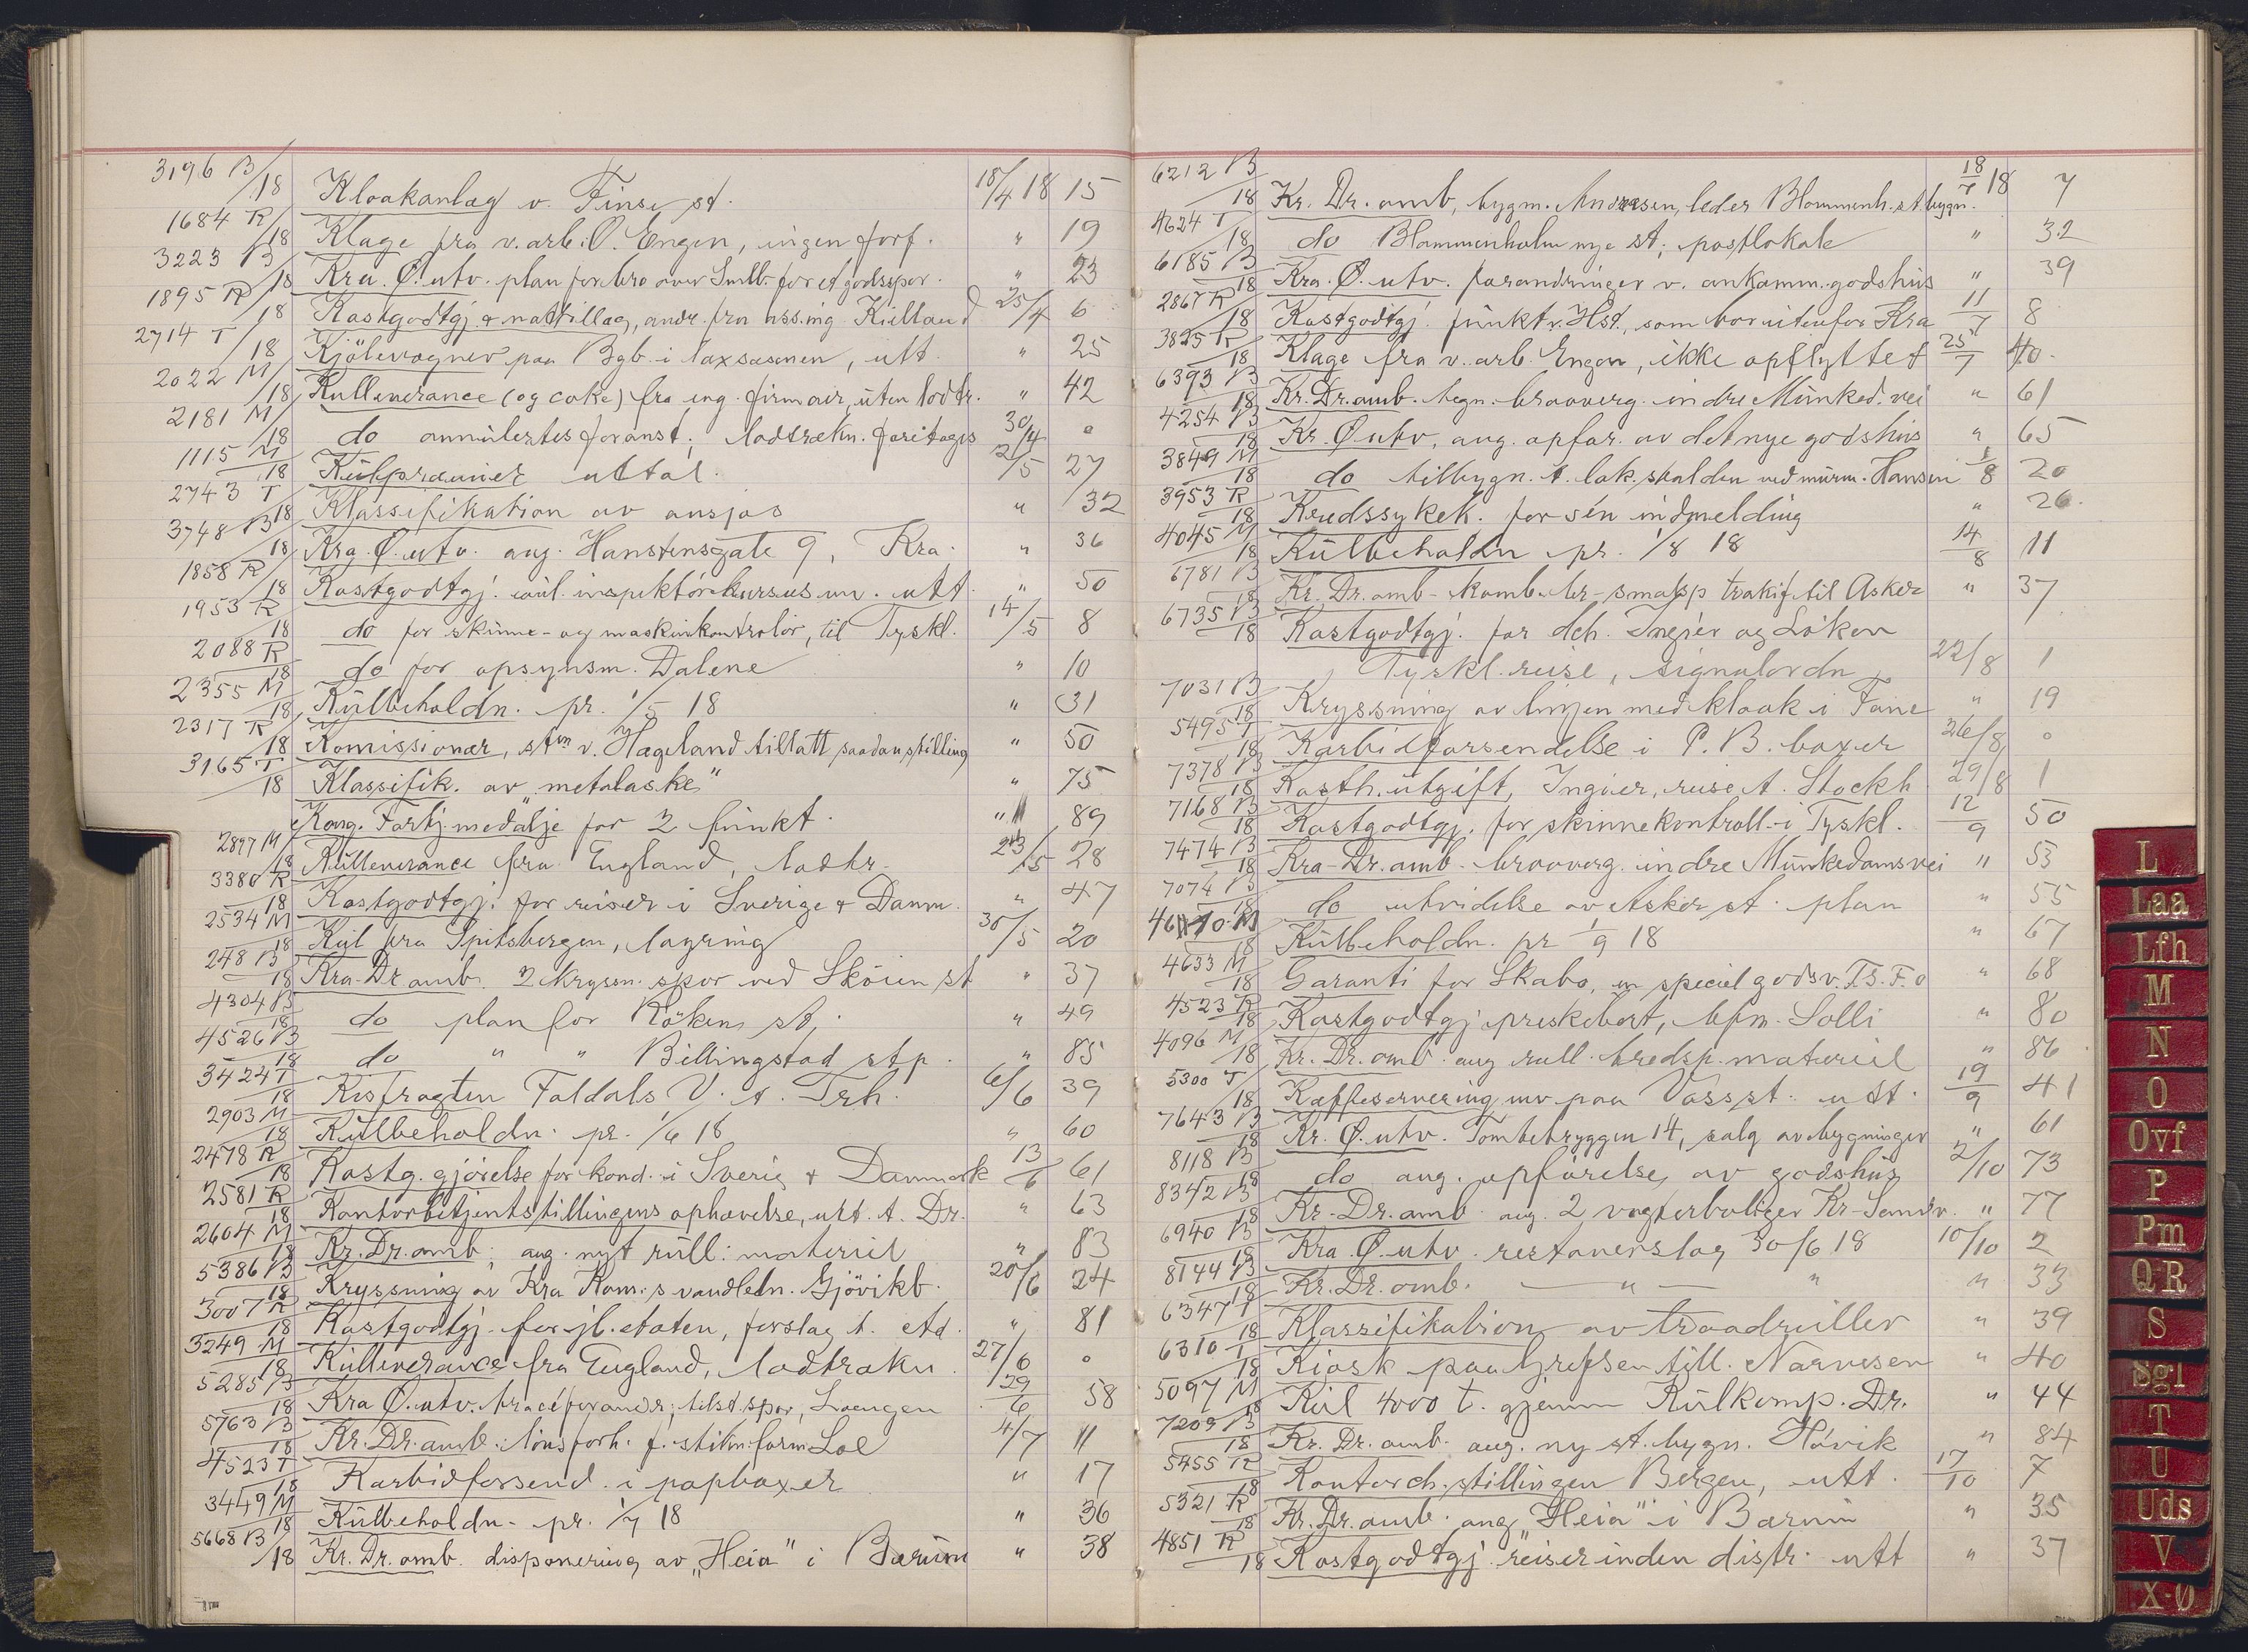 3196 B/18 Kloakanlæg v. Finse st. 18/4 18 15
1684 R/18 Klage fra v. arb. O. Engen, ingen forf. " 19
3223 B/18 Kra. Ø. utv. plan for bro over Smlb. for et godsspor. " 23
1895 R/18 Kostgodtgj. & nattillæg, andr. fra ass. ing Kielland 25/4 6
2714 T/18 Kjölevogner paa Bgb. i laxsæsonen, utt. " 25
2022 M/18 Kulleverance (og coke) fra eng. firmaer, uten lodtr. " 42
2181 M/18 do annulertes foranst; lodtrækn. foretages 30/4 "
1115 M/18 Kulpræmier uttal. 2/5 27
2743 T/18 Klassifikation av ansjos " 32
3748 B/18 Kra. Ø. utv. ang. Hanstensgate 9, Kra. " 36
1858 R/18 Kostgodtgj. inspektörkursus m.v. utt. " 50
1953 R/18 do for skinne- og maskinkontrolör, til Tyskl. 14/5 8
2088 R/18 do for opsynsm. Dalene " 10
2355 M/18 Kulbeholdn. pr. 1/5 18 " 31
2317 R/18 Komissionær, stm v. Hægeland tillatt saadan stilling " 50
3165 T/18 Klassifik. av "metalaske" " 75
Kong. Fortj. medalje for 2 funkt. " 89
2897 M/18 Kulleverance fra England, lodtr. 23/5 28
3380 R/18 Kostgodtgj. for reiser i Sverige & Danm. " 47
2534 M/18 Kul fra Spitsbergen, lagring 30/5 20
248 B/18 Kra-Dr. amb. 2 kryssn. spor ved Sköien st " 37
4304 B/18 do plan for Röken st; " 49
4526 B/18 do " " Billingstad stp. " 85
3424 T/18 Kisfragten Foldals V. t. Trh. 6/6 39
2903 M/18 Kulbeholdn. pr. 1/6 18 " 60
2478 R/18 Kostg. gjörelse for kond. i Sverig & Danmark 13/6 61
2581 R/18 Kontorbetjentstillingens ophævelse, utt. t. Dr. " 63
2604 M/18 Kr. Dr. amb; ang. nyt rull. materiel " 83
5386 B/18 Kryssning av Kra Kom.s vandledn. Gjövikb. 20/6 24
3007 R/18 Kostgodtgj. for jb. etaten, forslag t. etd. " 81
3249 M/18 Kulleverance fra England, lodtrækn. 27/6 "
5285 B/18 Kra Ø. utv. tracéforandr; tilst. spor, Loengen 29/6 58
5763 B/18 Kr. Dr. amb. lönsforh. f. stikn. form. Loe 4/7 11
4523 T/18 Karbidforsend. i papboxer " 17
3449 M/18 Kulbeholdn. pr. 1/7 18 " 36
5668 B/18 Kr. Dr. amb. disponering av "Heia" i Bærum " 38
6212 B/18 Kr. Dr. amb, bygm. Andresen, leder Blommenh. st. bygn. 18/7 18 7
4624 T/18 do Blommenholm nye st; postlokale " 32
6185 B/18 Kra. Ø. utv. forandringer v. ankomm. godshus " 39
2867 R/18 Kostgodtgj. funkt v. Hst., som bor utenfor Kra 11/7 8
3825 R/18 Klage fra v. arb. Engen, ikke opflyttet 25/7 40
6393 B/18 Kr. Dr. amb. begn. brooverg. indre Munked. vei " 61
4254 B/18 Kr. Ø utv, ang. opför. av det nye godshus " 65
3849 M/18 do tilbygn. t. lok. stalden ved murm. Hansen 1/8 20
3953 R/18 Kredssykek. for sén indmelding " 26
4045 M/18 Kulbeholdn pr. 1/8 18 14/8 11
6781 B/18 Kr. Dr. amb - komb. br - smalsp trafik til Asker " 37
6735 B/18 Kostgodtgj. for dch. Ingier og Löken
Tyskl. reise, signalordn 22/8 1
7031 B/18 Kryssning av linjen med kloak i Fane " 19
5495 T/18 Karbidforsendelse i P. B. boxer 26/8 "
7378 B/18 Kosth. utgift, Ingier, reise t. Stockh 29/8 1
7168 B/18 Kostgodtgj. for skinnekontroll i Tyskl. 12/9 50
7474 B/18 Kra-Dr. amb. brooverg. indre Munkedamsvei " 53
7074 B/18 do utvidelse av Asker st. plan " 55
4610 M/18 Kulbeholdn. pr 1/9 18 " 67
4633 M/18 Garanti for Skabo, en speciel godsv. T.S.F.O " 68
4523 R/18 Kostgodtgj. preskebort, bfm. Solli " 80
4096 M/18 Kr. Dr. amb. ang rull. bredsp. materiel " 86
5300 T/18 Kaffeservering mv paa Voss st. utt. 19/9 41
7643 B/18 Kr. Ø. utv. Tomtebryggen 14, salg av bygninger " 61
8118 B/18 do ang. opförelse av godshus 2/10 73
8342 B/18 Kr-Dr. amb ang. 2 vogterboliger Kr-Sandv. " 77
6940 B/18 Kra. Ø. utv. restanerslag 30/6 18 10/10 2
8144 B/18 Kr. Dr. amb. — " — " " 33
6347 T/18 Klassifikation av traadruller " 39
6310 T/18 Kiosk paa Grefsen till. Narvesen " 40
5097 M/18 Kul 4000 t. gjennem Kulkomp. Dr. " 44
7209 B/18 Kr. Dr. amb. ang. ny st. bygn. Hövik " 84
5455 R/18 Kontorch. stillingen Bergen, utt. 17/10 7
5321 R/18 Kr. Dr. amb. ang "Heia" i Bærum " 35
4851 R/18 Kostgodtgj. reiser inden distr. utt " 37
L
Laa
Lfh
M
N
O
Ovf
P
Pm
Q R
S
Sgl
T
U
Uds
V
X-Ø